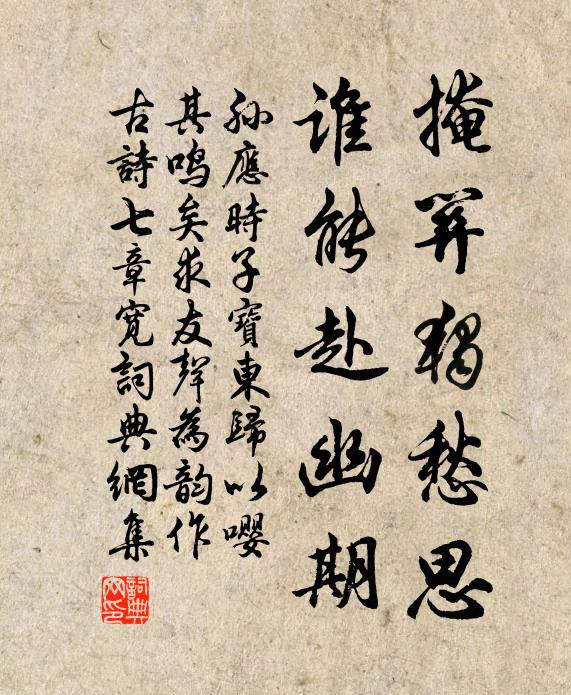 掩卷獨愁思
誰能赴幽期
孫應時子寶東歸以嚶
其鳴矣求友聲為韵作
古詩七章寬詞典網集
詞典
网印